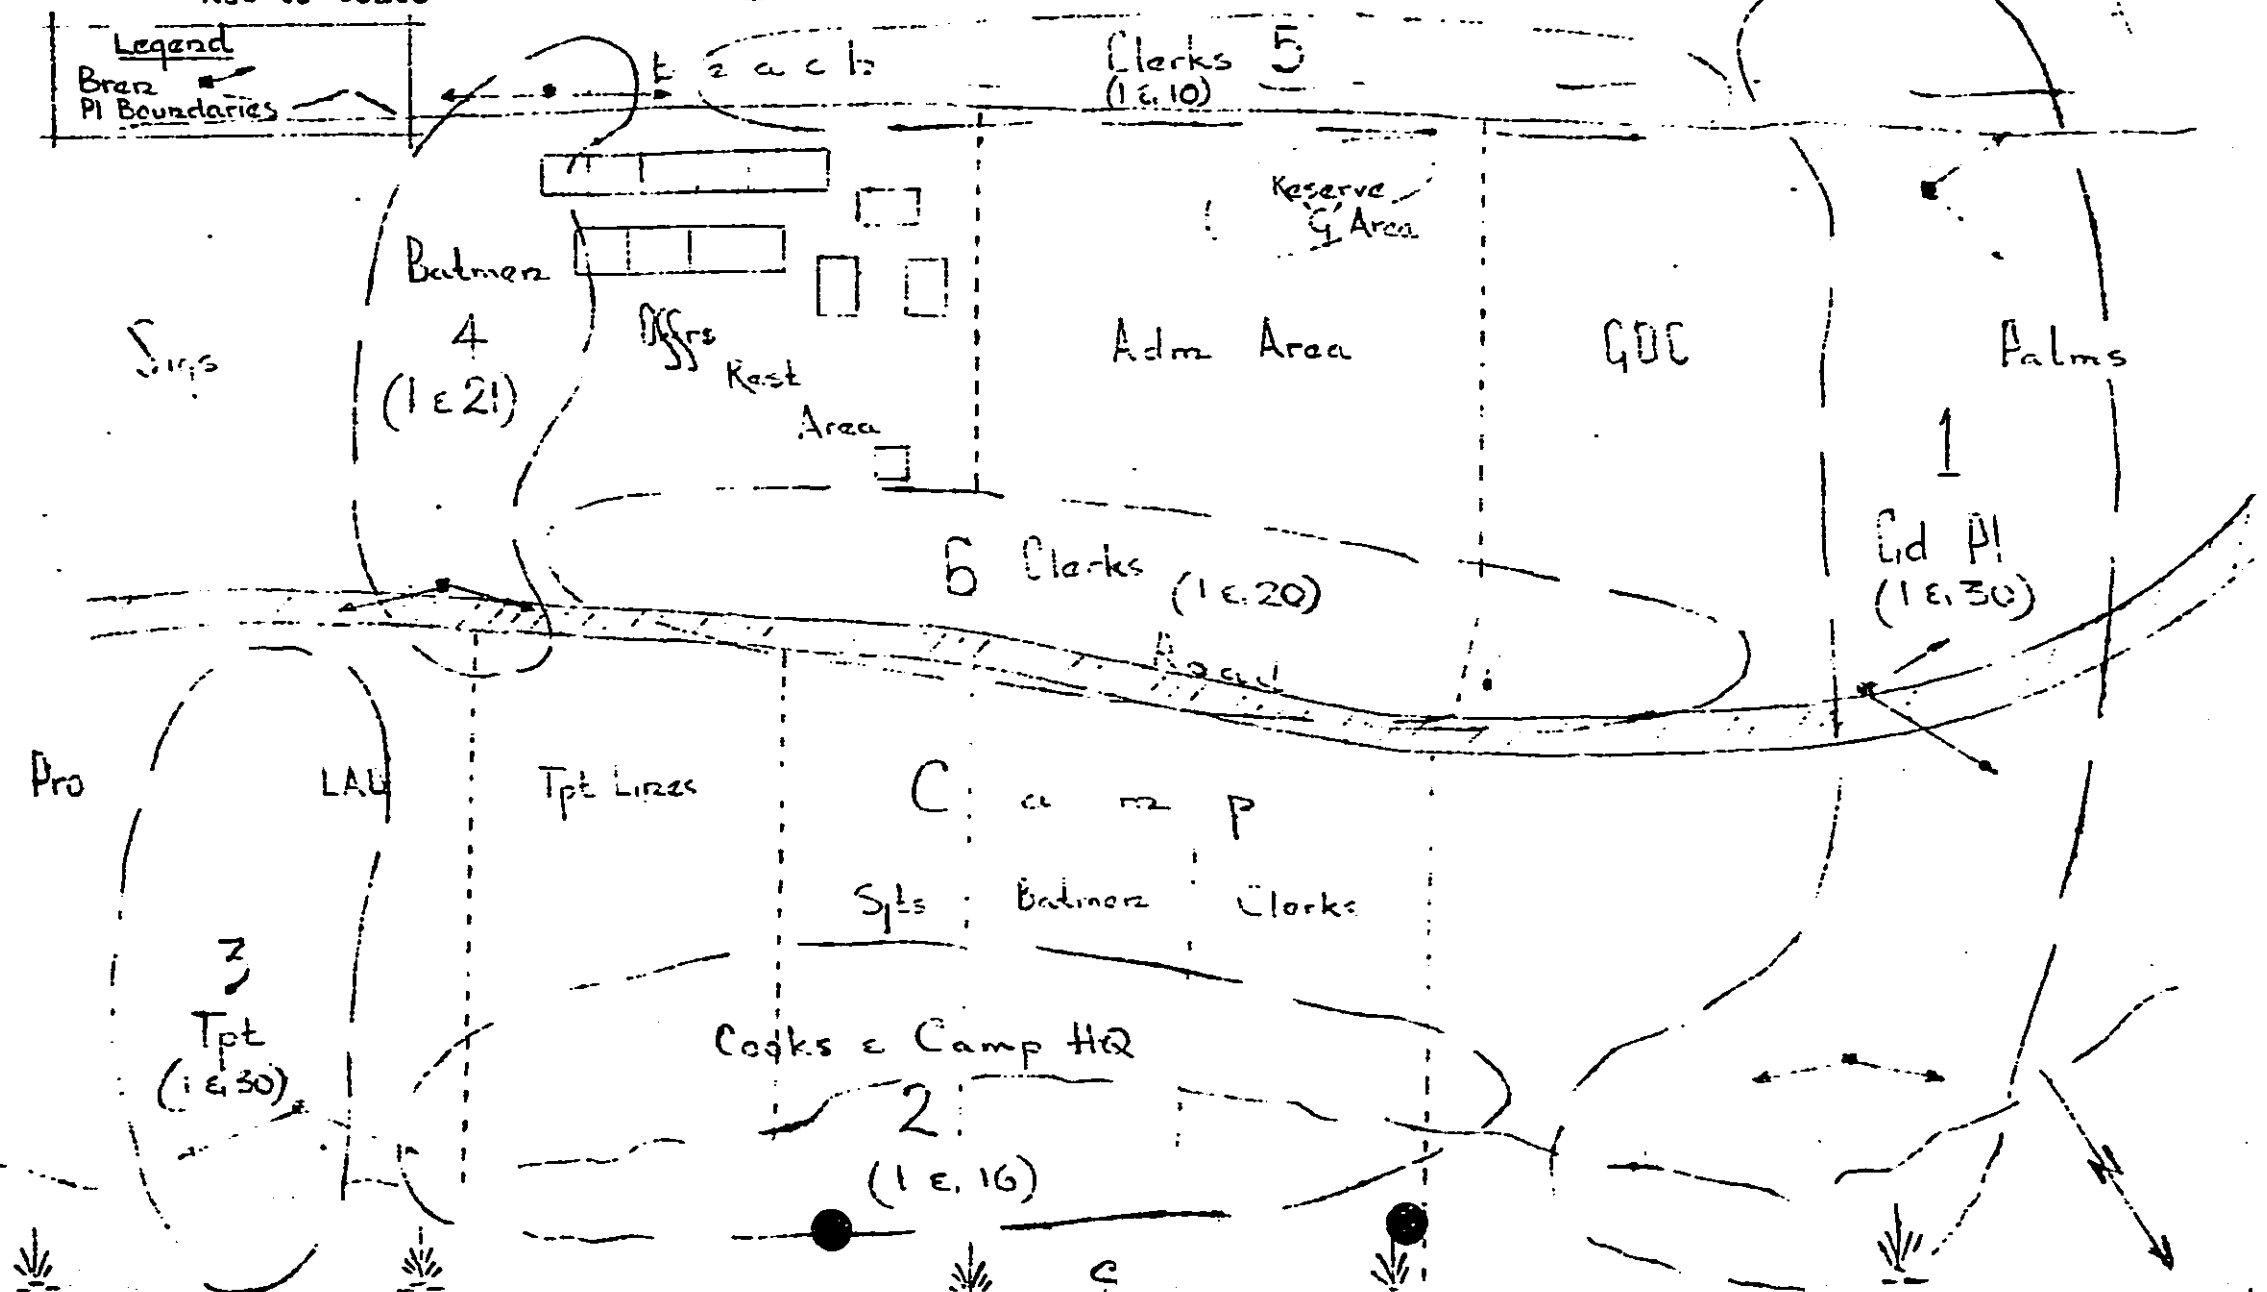 Legend
Bren
Pl Boundaries
Clerks 5
(1 & 10)
Reserve
G Area
Batmen
4
(1 & 21)
Sigs
Offrs
Rest
Area
Adm Area
GDC
Palms
1
Gd Pl
(1 & 30)
6 Clerks
(1 & 20)
Road
Pro
LAD
Tpt Lines
Camp
Batmen
Clerks
3
Tpt
(1 & 30)
Cooks & Camp HQ
2
(1 & 16)